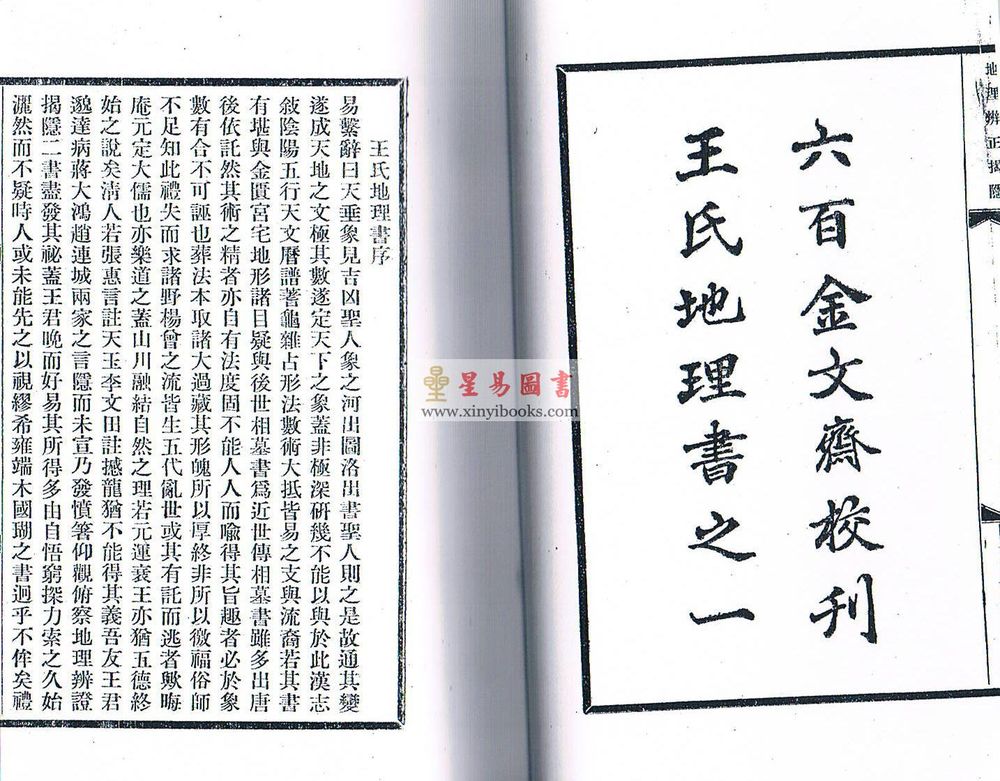 地理辨正揭隱
六百金文齋校刊
王氏地理書之一
王氏地理書序
易繫辭曰天垂象見吉凶聖人象之河出圖洛出書聖人則之是故通其變
遂成天地之文極其數遂定天下之象蓋非極深研幾不能以與於此漢志
敍陰陽五行天文曆譜蓍龜雜占形法數術大抵皆易之支與流裔若其書
有堪輿金匱宮宅地形諸目疑與後世相墓書爲近世傳相墓書雖多出唐
後依託然其術之精者亦自有法度固不能人人而喩得其旨趣者必於象
數有合不可誣也葬法本取諸大過藏其形魄所以厚終非所以徼福俗師
不足知此禮失而求諸野楊曾之流皆生五代亂世或其有託而逃者歟晦
庵元定大儒也亦樂道之蓋山川融結自然之理若元運衰王亦猶五德終
始之說矣清人若張惠言註天玉李文田註撼龍猶不能得其義吾友王君
邈達病蔣大鴻趙連城兩家之言隱而未宣乃發憤箸仰觀俯察地理辨證
揭隱二書盡發其祕蓋王君晚而好易其所得多由自悟窮探力索之久始
灑然而不疑時人或未能先之以視繆希雍端木國瑚之書迥乎不侔矣禮
星易圖書
www.xinyibooks.com